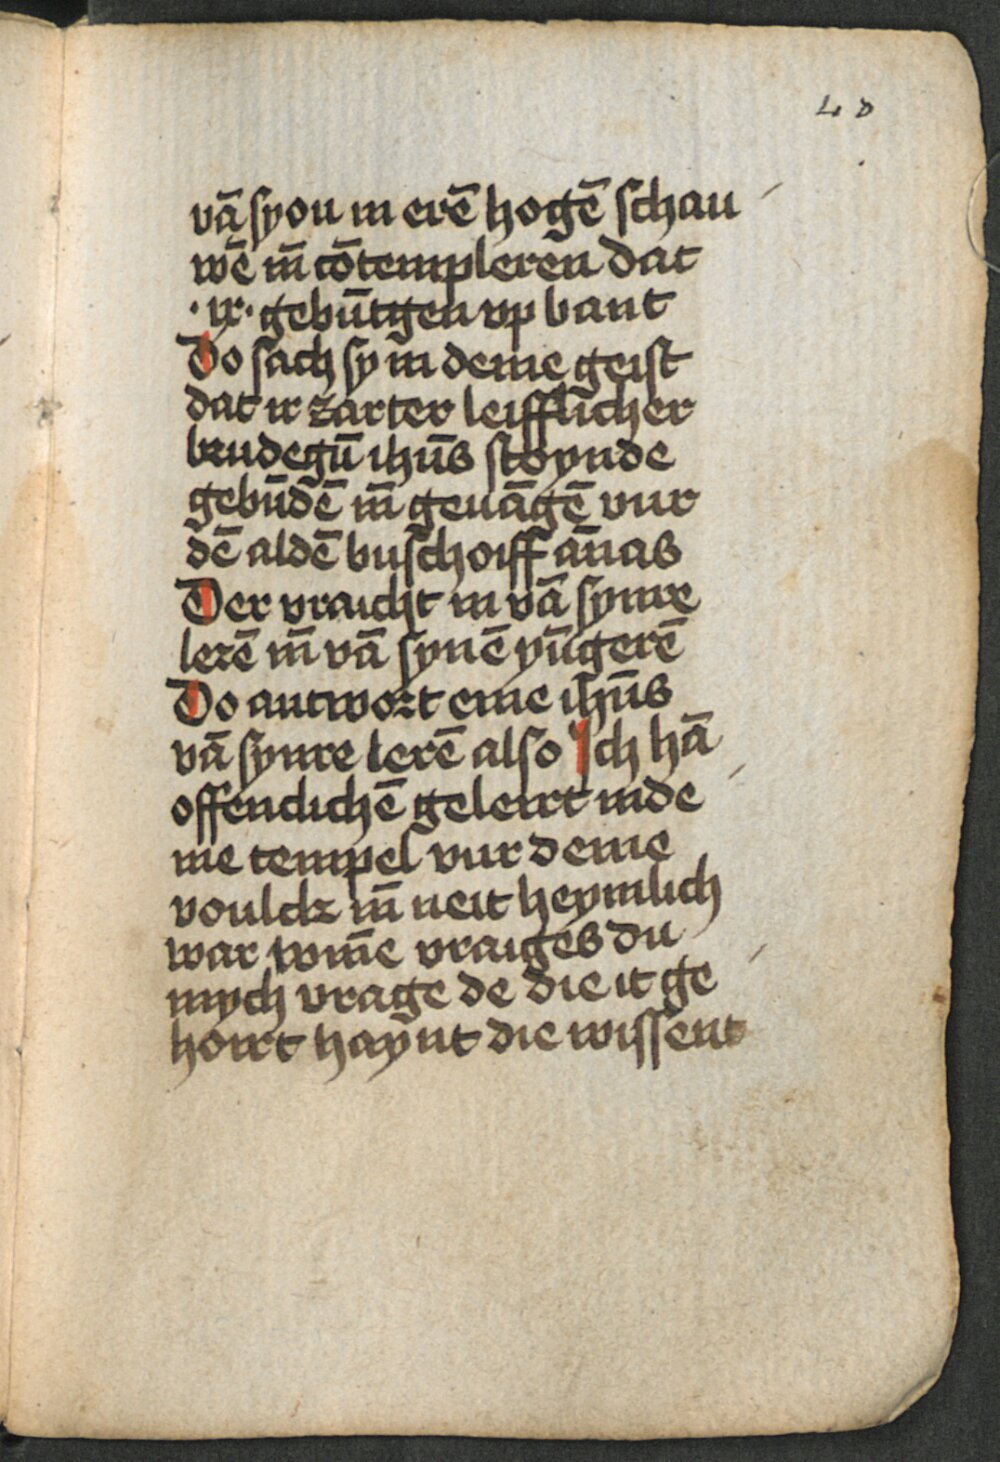 48
vā syon in erē hogē schau
wē in̄ cōtemplerēn dat
·ix· gebūtgen vp bant
Do sach sy in deme geist
dat ir zarter leifflicher
brudegū ihūs stoynde
gebūdē in̄ geuāgē vur
dē aldē buschoiff an̄as
Der vraicht in vā synre
lerē in̄ vā synē yūgerē
Do antwort eme ihūs
vā synre lerē also Ich hā
offenclichē geleirt inde
me tempel vur deme
voulck in̄ neit heymlich
war wm̄e vraiges du
mych vrage de die it ge
hoirt haynt die wissent